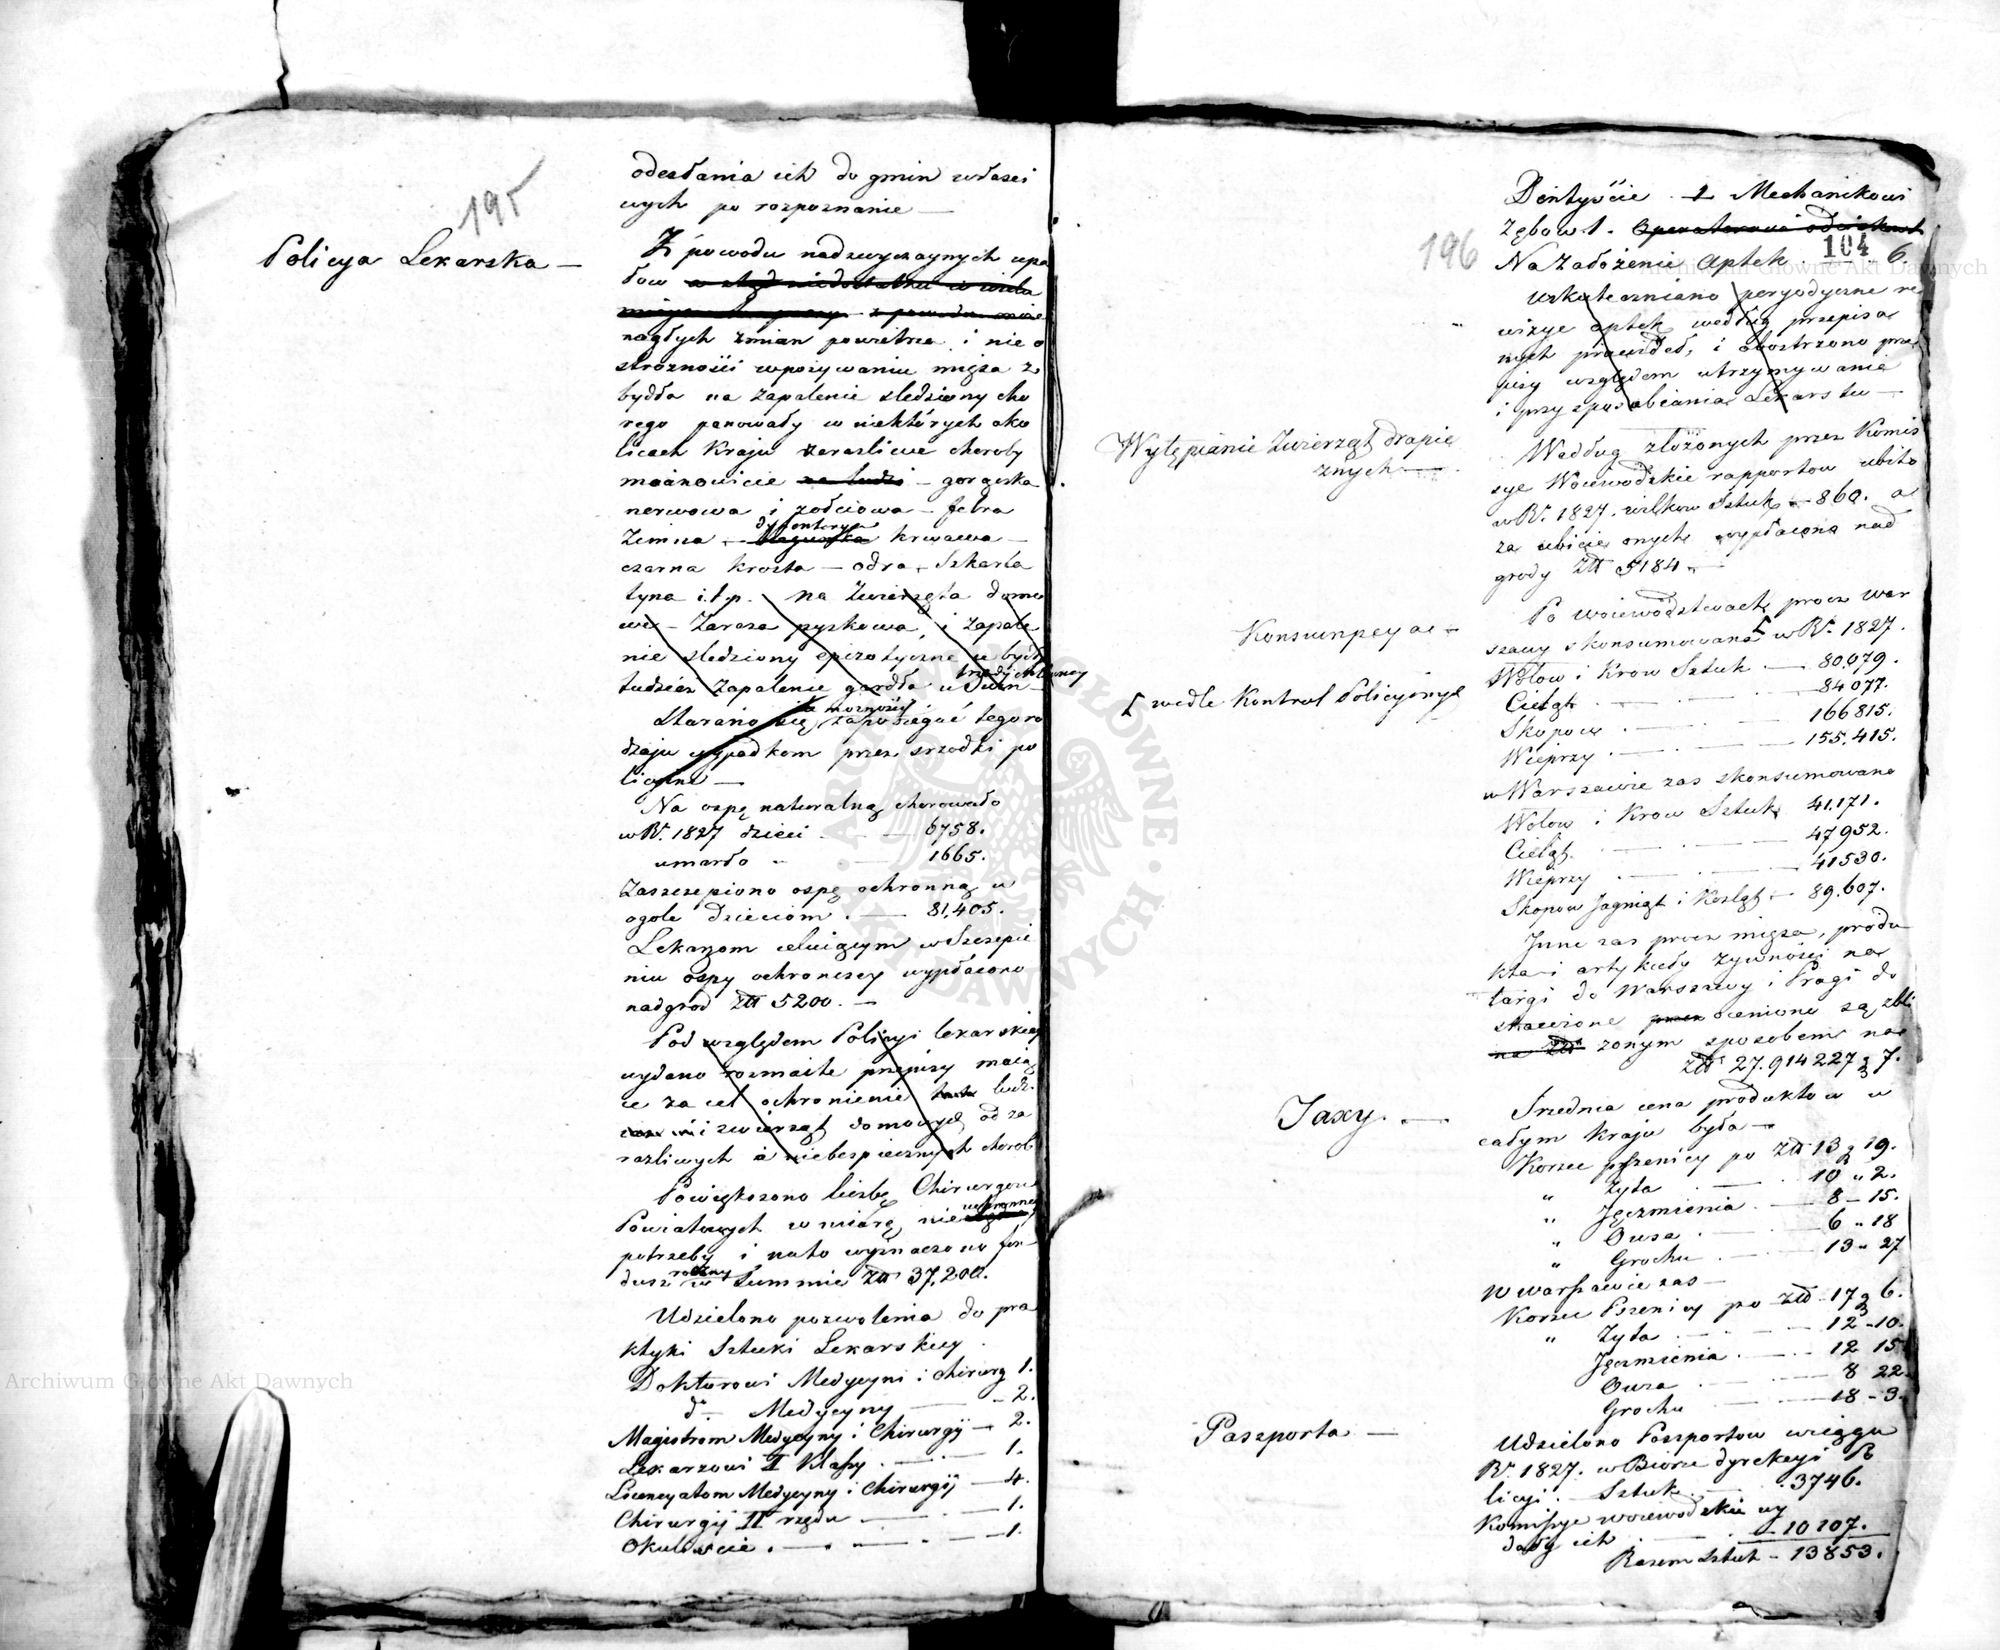 195
odesłania ich do gmin właści
wych po rozpoznanie —
Policya Lekarska —
Z powodu nadzwyczaynych upa
łow w stąd niedostatku w wielu
z powodu
nagłych zmian powietrza i nieo
strożności wpożywaniu mięsa z
bydła na zapalenie sledziony cho
rego panowały w niektórych oko
licach Kraju zarasliwe choroby
mianowicie na ludzi — gorączka
nerwowa i żołciowa — febra
dyssenterya
Zimna — krwawa —
czarna krosta — odra — Szkarla
tyna i.t.p. na Zwierzęta domo
we — Zaraza pyskowa, i zapale
nie sledziony epizotyczne u bydła
trzody chlewney
tudzież Zapalenie gardła u Swin —
możności
Starano się zapobiegać tego ro
dzaju wypadkom przez srzodki po
licyine —
Na ospę naturalną chorowało
w R. 1827 dzieci — 6758.
umarło — 1665.
Zaszczepiono ospę ochronną w
ogole dzieciom . — 81,405.
Lekarzom celuiącym w szczepie
niu ospy ochronney wypłacono
nadgrod Złł 5200. —
Pod względem Policyi lekarskiey
wydano rozmaite przepisy maią
ce za cel ochronienie ludz
i zwierząt domowych od za
razliwych i niebespiecznych chorob
Powiększono liczbę Chirurgow
Powiatowych w miarę
potrzeby i nato wyznaczono fun
roczny
dusz w Summie Złł 37,200.
Udzielono pozwolenia do pra
ktyki Sztuki Lekarskiey
Doktorowi Medycyni i chirurg 1.
do — Medycyny — 2.
Magistrom Medycyny i Chirurgij — 2.
Lekarzowi II Klassy . — 1.
Licencyatom Medycyny i Chirurgij — 4.
Chirurgij II rzędu — 1.
Okuliscie . — 1.
196
104
Dentyście . 1 Mechanikowi
Zębow 1. Operatorowi
Na Założenie Aptek . 6.
uskuteczniano peryodyczne re
wizye aptek według przepisa
nych prawideł, i obostrzono prze
pisy względem utrzymywanie
i przysposabiania Lekarstw —
Wytępianie Zwierząt drapie
znych —
Według złożonych przez Komis
sye Woiewodzkie rapportow ubito
w R. 1827. wilkow Sztuk — 860. a
za ubicie onych wypłacono nad
grody Złł 5184 —
Konsumpcya —
Po woiewodztwach procz War
szawy skonsumowano [ w R. 1827.
[ wedle Kontrol Policyjnych
Wołow i Krow Sztuk — 80,079.
Cieląt . — 84077.
Skopow . — 166815.
Wieprzy . — 155,415.
w Warszawie zas skonsumowano
Wołow i Krow Sztuk 41,171.
Cieląt . — 47952.
Wieprzy . — 41530.
Skopow Jagniąt i Kozląt — 89,607.
Inne zas procz mięsa, produ
kta i artykuły żywności na
targi do Warszawy i Pragi do
stawione ocenione są zbli
zonym sposobem na
Złł 27.914227 g 7.
Taxy. —
Srzednia cena produktow w
całym Kraju była —
Korzec pszenicy po Złł 13 g 19.
„ Zyta . — 10 „ 2.
„ Jęczmienia . — 8 — 15.
„ Owsa . — 6 „ 18
„ Grochu . — 13 „ 27
W warszawie zas —
Korzec Pszenicy po Złł 17 g 6.
„ Zyta . — 12 — 10.
Jęczmienia . — 12 15
Owsa . — 8 22.
Grochu . — 18 — 3.
Paszporta —
Udzielono Paszportow wciągu
R. 1827. w Biorze dyrekcyi Po
licyi . — Sztuk . — 3746.
Komissye woiewodzkie wy
dały ich — 10107.
Razem Sztuk — 13853.
Archiwum Główne Akt Dawnych
Archiwum Główne Akt Dawnych
ARCHIWUM GŁÓWNE · AKT DAWNYCH ·